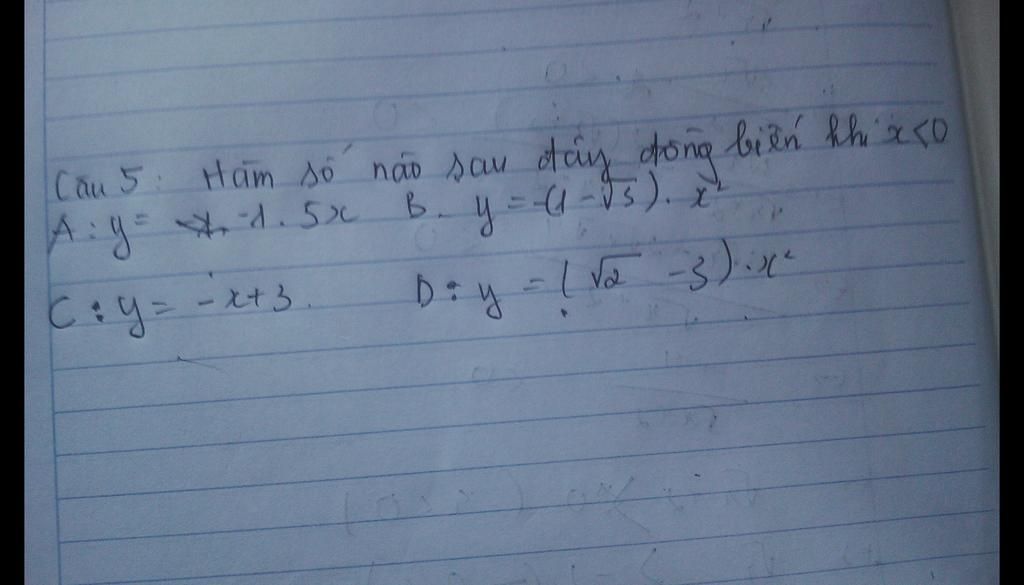 Câu 5: Hàm số nào sau đây đồng biến khi x<0
A: y= -1.5x B. y = -(1-√5).x²
C: y = -x+3. D: y = (√2 -3).x²